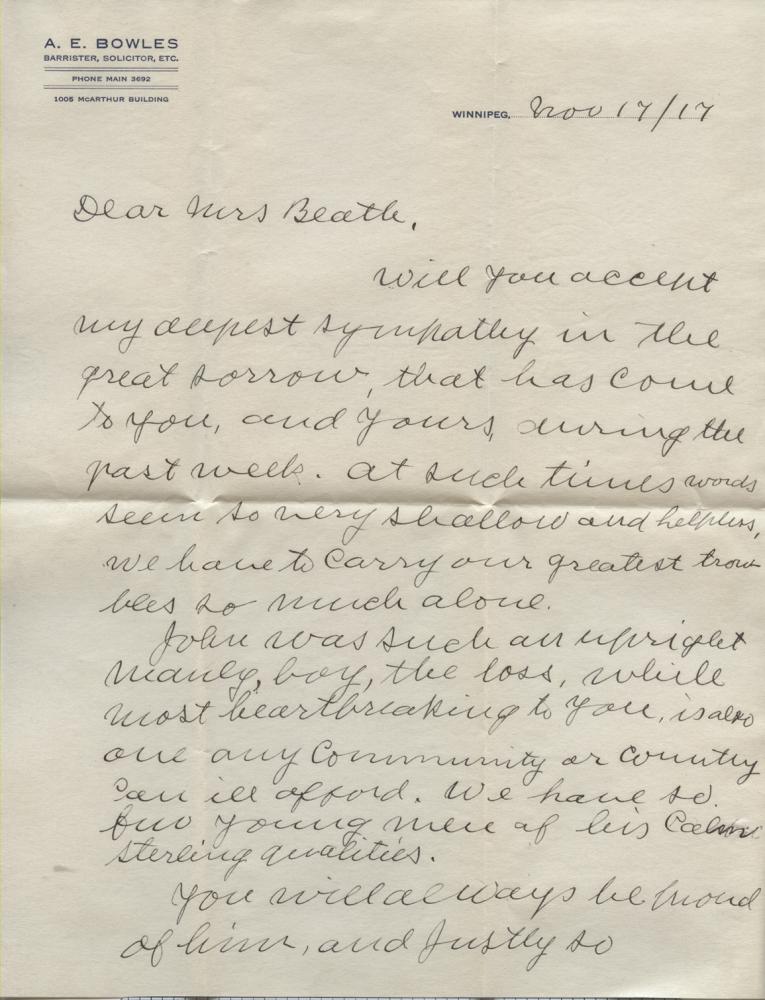 A. E. BOWLES
BARRISTER, SOLICITOR, ETC.
PHONE MAIN 3692
1005 McARTHUR BUILDING
WINNIPEG, Nov 17/17
Dear Mrs Beath,
Will you accept
my deepest sympathy in the
great sorrow, that has come
to you, and yours, during the
past week. At such times words
seem so very shallow and helpless,
we have to carry our greatest trou
bles so much alone.
John was such an upright
manly, boy, the loss, while
most heartbreaking to you, is also
one any Community or Country
can ill afford. We have so
few young men of his Calm
sterling qualities.
You will always be proud
of him, and Justly so